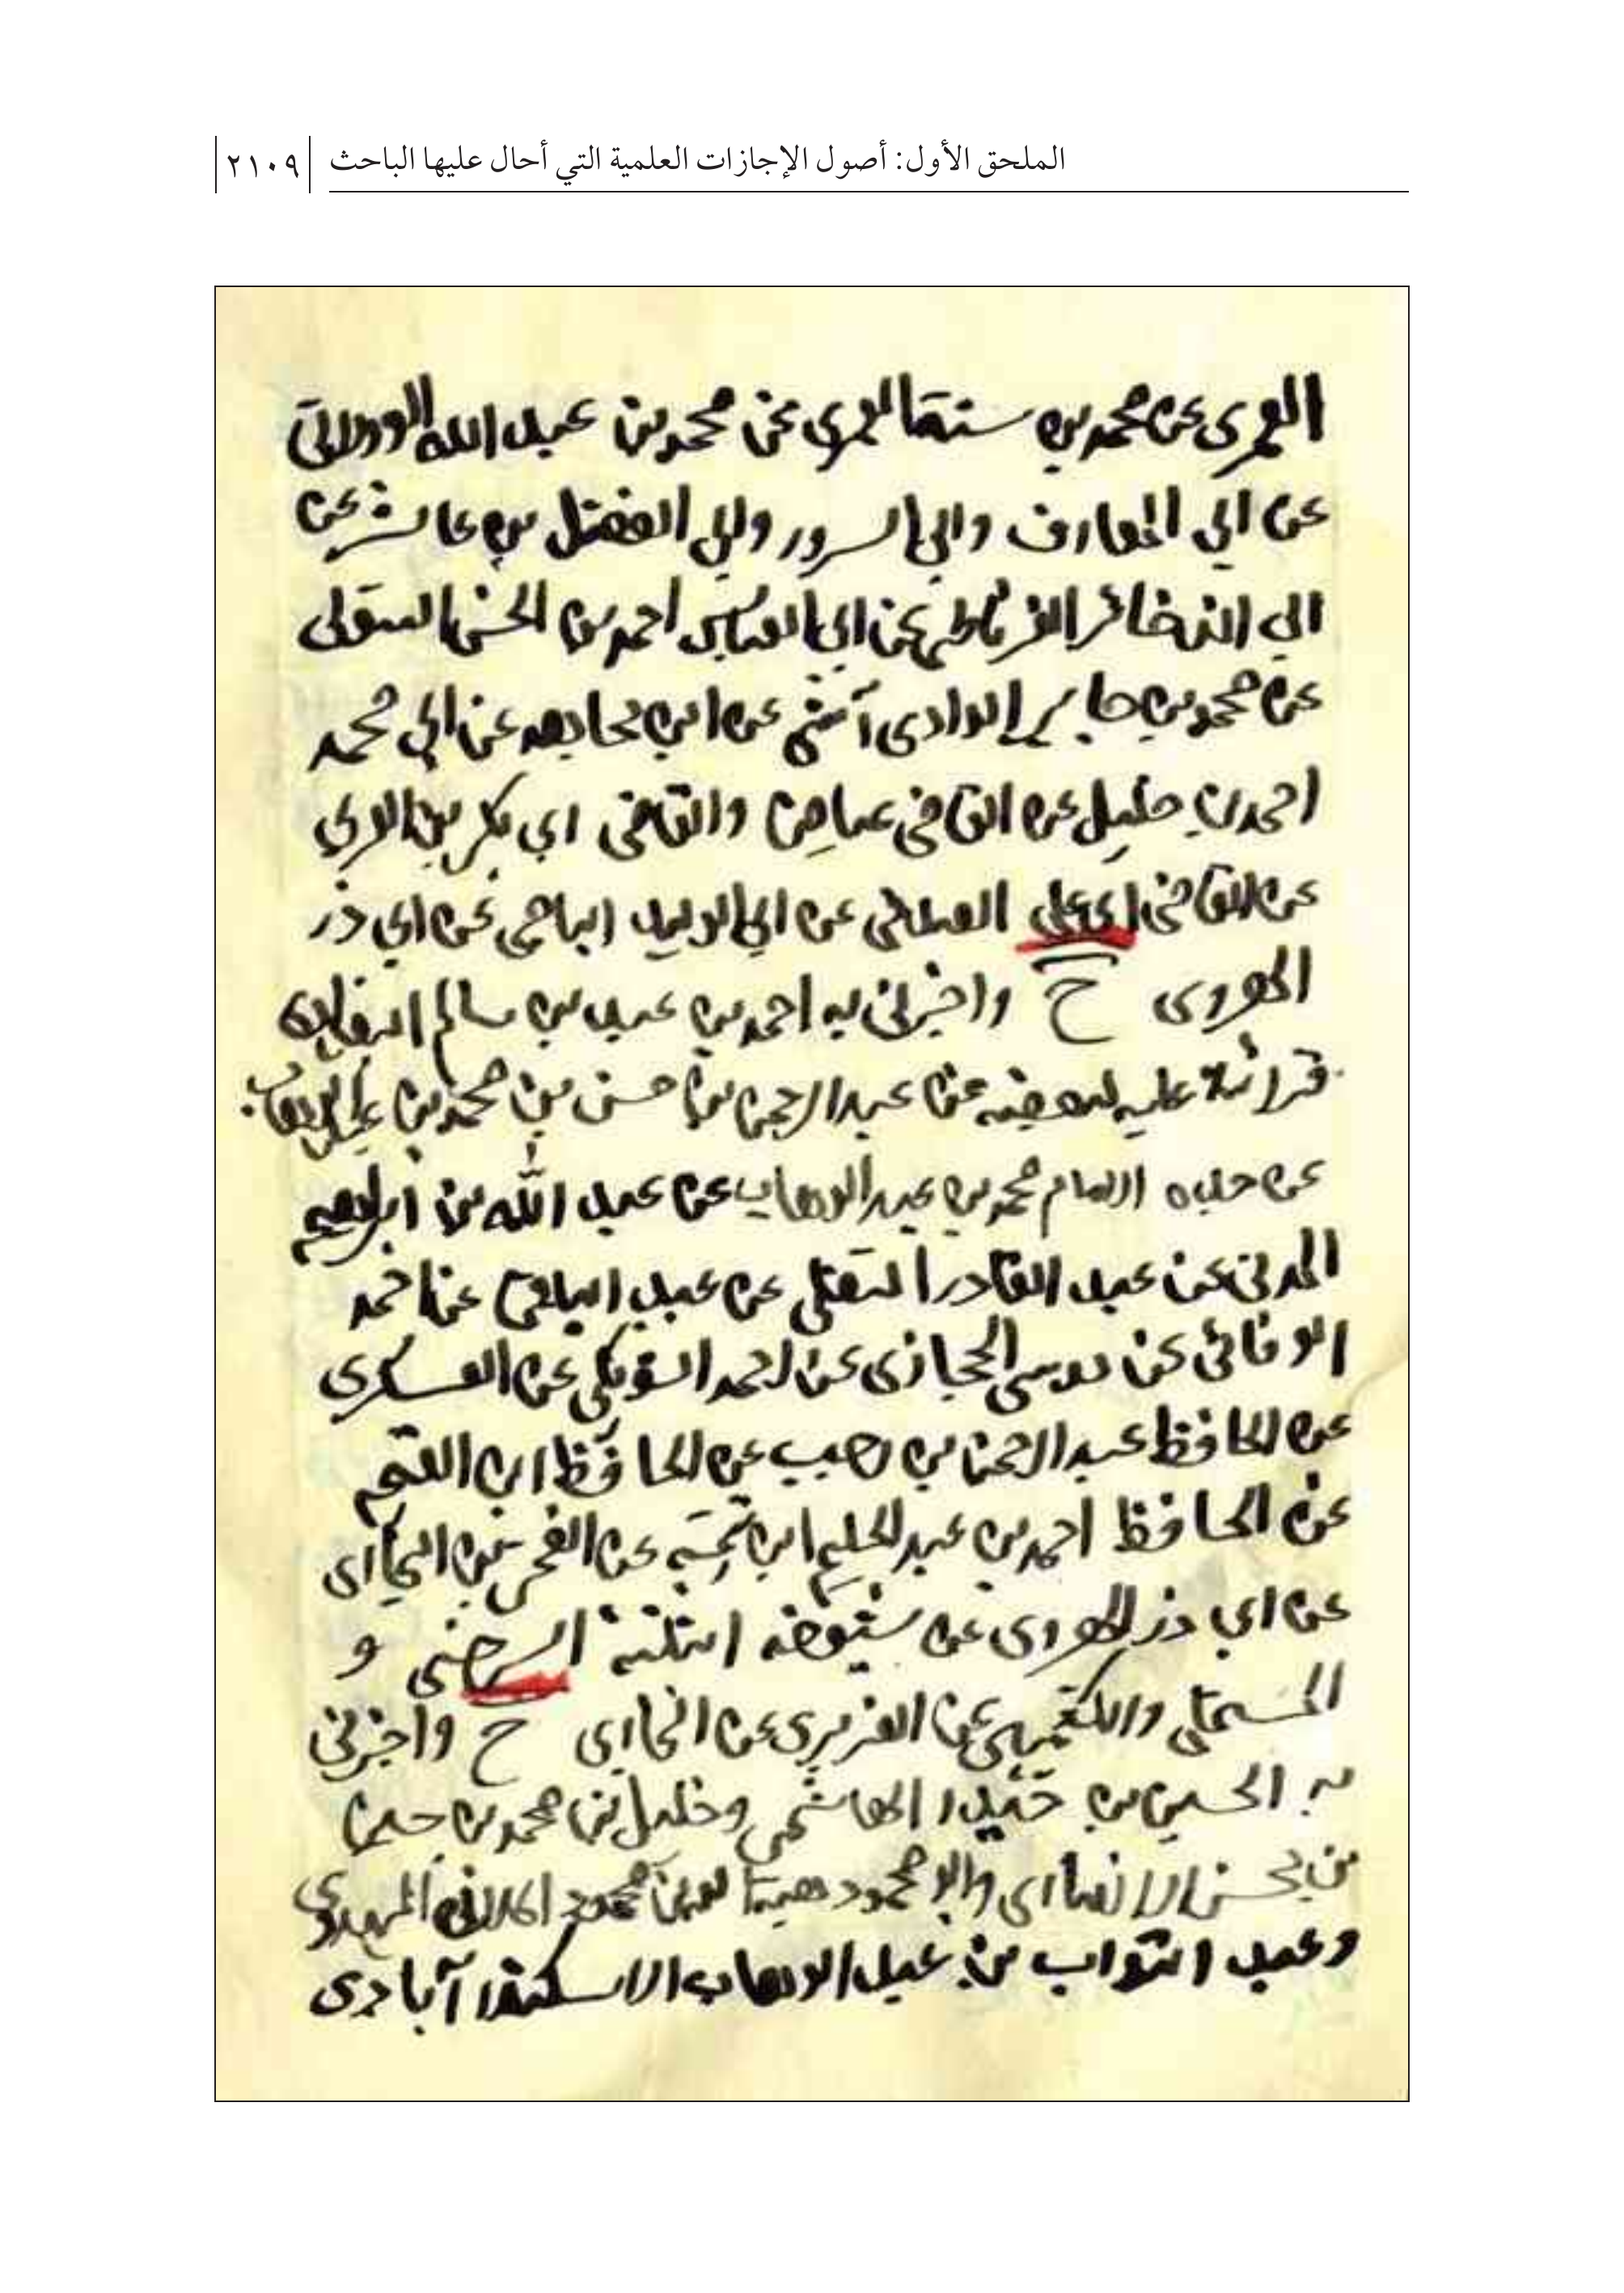 الملحق الأول: أصول الإجازات العلمية التي أحال عليها الباحث ٢١٠٩
العمرى عن محمد بن سنة العمرى عن محمد بن عبد الله الوولاتى
عن ابي المعارف وابي السرور وابي الفضل بن عاشر عن
ابي الغرناطى عن ابي العباس احمد بن الحسن
عن محمد بن جابر الوادى آشي عن ابن عن ابي محمد
احمد بن خليل عن القاضى عياض والقاضى ابي بكر بن العربي
عن القاضى ابي علي الصدفى عن ابي الوليد الباجى عن ابي ذر
الهروى ح واخبرنى به احمد بن عبد بن سالم
قرائة عليه لبعضه عن عبد الرحمن بن حسن بن محمد بن عبد الوهاب
عن جده الامام محمد بن عبد الوهاب عن عبد الله بن ابراهيم
المدنى عن عبد القادر التغلبى عن عبد الباقى عن احمد
الوفائى عن موسى الحجازى عن احمد الشويكى عن العسكرى
عن الحافظ عبد الرحمن بن رجب عن الحافظ ابن القيم
عن الحافظ احمد بن عبد الحليم ابن تيمية عن الفخر بن البخارى
عن ابي ذر الهروى عن شيوخه الثلثة السرخسى و
المستملى والكشميهنى عن الفربرى عن البخارى ح واخبرنى
به الحسين بن حيدر الهاشمى وخليل بن محمد بن حسين
بن محسن الانصارى وابو محمود هبة الله بن محمود الملانى المهدوى
وعبد التواب بن عبد الوهاب الاسكندرآبادى